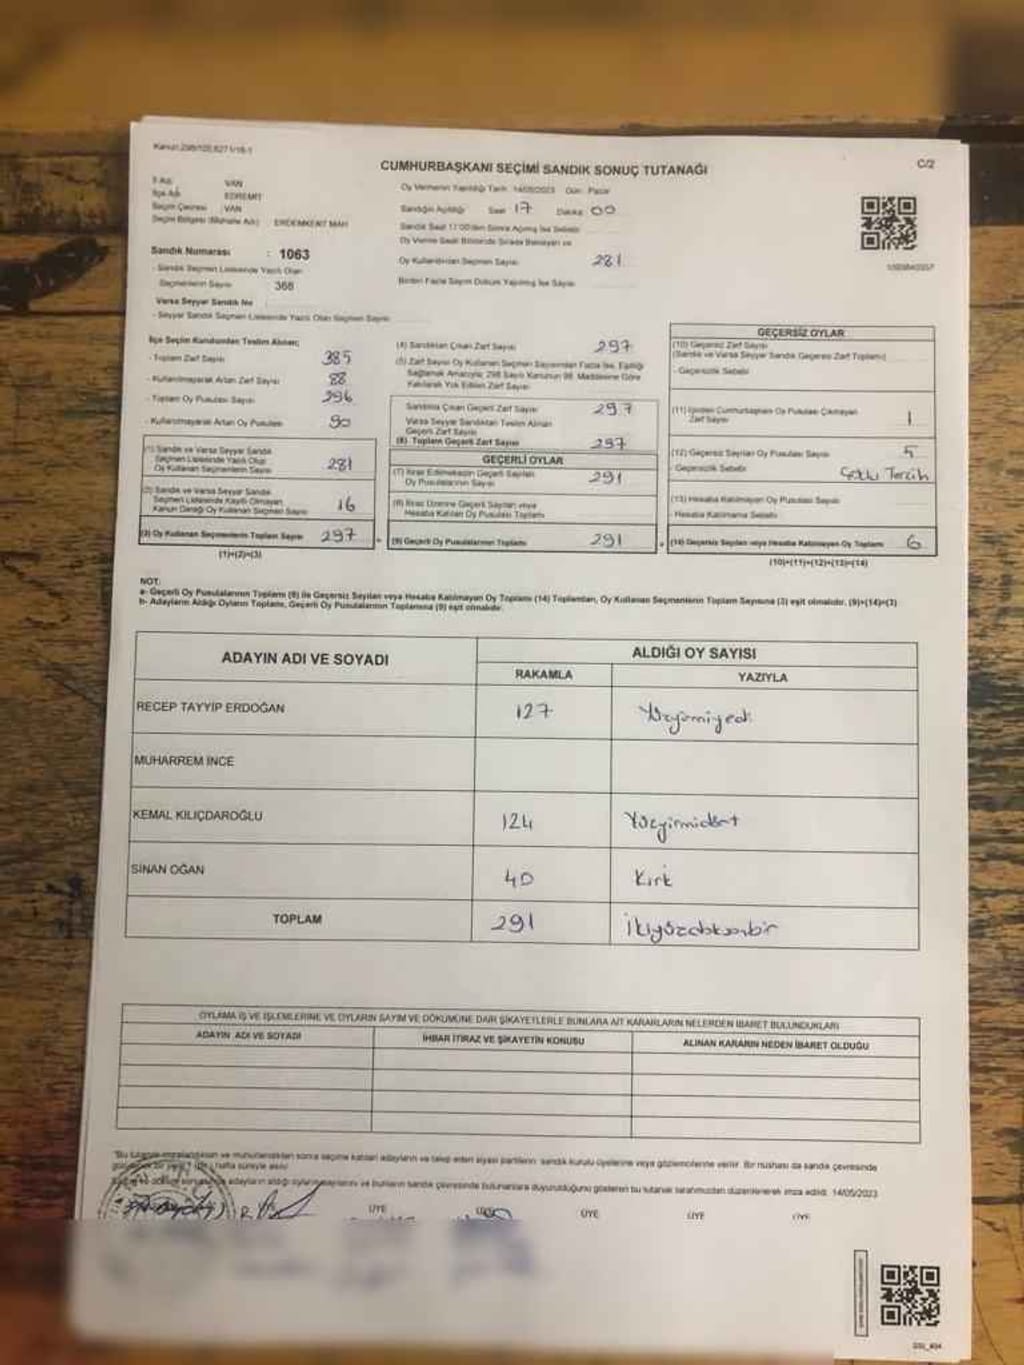 Kanun:298/105,6271/16-1
CUMHURBAŞKANI SEÇİMİ SANDIK SONUÇ TUTANAĞI
C/2
İl Adı : VAN
İlçe Adı : EDREMİT
Seçim Çevresi : VAN
Seçim Bölgesi (Mahalle Adı) : ERDEMKENT MAH
Sandık Numarası : 1063
- Sandık Seçmen Listesinde Yazılı Olan
Seçmenlerin Sayısı 368
Varsa Seyyar Sandık No
- Seyyar Sandık Seçmen Listesinde Yazılı Olan Seçmen Sayısı
Oy Vermenin Yapıldığı Tarih: 14/05/2023 Gün: Pazar
Sandığın Açıldığı Saat 17 Dakika 00
Sandık Saat 17:00'den Sonra Açılmış İse Sebebi
Oy Verme Saati Bitiminde Sırada Bekleyen ve
Oy Kullandırılan Seçmen Sayısı 281
Birden Fazla Sayım Döküm Yapılmış İse Sayısı
İlçe Seçim Kurulundan Teslim Alınan;
- Toplam Zarf Sayısı 385
- Kullanılmayarak Artan Zarf Sayısı 88
- Toplam Oy Pusulası Sayısı 396
- Kullanılmayarak Artan Oy Pusulası 90
(1) Sandık ve Varsa Seyyar Sandık
Seçmen Listesinde Yazılı Olup
Oy Kullanan Seçmenlerin Sayısı 281
(2) Sandık ve Varsa Seyyar Sandık
Seçmen Listesinde Kayıtlı Olmayan,
Kanun Gereği Oy Kullanan Seçmen Sayısı 16
(3) Oy Kullanan Seçmenlerin Toplam Sayısı 297
(1)+(2)=(3)
(4) Sandıktan Çıkan Zarf Sayısı 297
(5) Zarf Sayısı Oy Kullanan Seçmen Sayısından Fazla İse, Eşitliği
Sağlamak Amacıyla; 298 Sayılı Kanunun 98. Maddesine Göre
Yakılarak Yok Edilen Zarf Sayısı
Sandıkta Çıkan Geçerli Zarf Sayısı 297
Varsa Seyyar Sandıktan Teslim Alınan
Geçerli Zarf Sayısı
(6) Toplam Geçerli Zarf Sayısı 297
GEÇERLİ OYLAR
(7) İtiraz Edilmeksizin Geçerli Sayılan
Oy Pusulalarının Sayısı 291
(8) İtiraz Üzerine Geçerli Sayılan veya
Hesaba Katılan Oy Pusulası Toplamı
(9) Geçerli Oy Pusulalarının Toplamı 291
GEÇERSİZ OYLAR
(10) Geçersiz Zarf Sayısı
(Sandık ve Varsa Seyyar Sandık Geçersiz Zarf Toplamı)
- Geçersizlik Sebebi
(11) İçinden Cumhurbaşkanı Oy Pusulası Çıkmayan
Zarf Sayısı 1
(12) Geçersiz Sayılan Oy Pusulası Sayısı 5
- Geçersizlik Sebebi Çoklu Tercih
(13) Hesaba Katılmayan Oy Pusulası Sayısı
- Hesaba Katılmama Sebebi
(14) Geçersiz Sayılan veya Hesaba Katılmayan Oy Toplamı 6
(10)+(11)+(12)+(13)=(14)
NOT:
a- Geçerli Oy Pusulalarının Toplamı (9) ile Geçersiz Sayılan veya Hesaba Katılmayan Oy Toplamı (14) Toplamları, Oy Kullanan Seçmenlerin Toplam Sayısına (3) eşit olmalıdır. (9)+(14)=(3)
b- Adayların Aldığı Oyların Toplamı, Geçerli Oy Pusulalarının Toplamına (9) eşit olmalıdır.
ADAYIN ADI VE SOYADI
ALDIĞI OY SAYISI
RAKAMLA YAZIYLA
RECEP TAYYİP ERDOĞAN 127 Yüzyirmiyedi
MUHARREM İNCE
KEMAL KILIÇDAROĞLU 124 Yüzyirmidört
SİNAN OĞAN 40 Kırk
TOPLAM 291 İkiyüzdoksanbir
OYLAMA İŞ VE İŞLEMLERİNE VE OYLARIN SAYIM VE DÖKÜMÜNE DAİR ŞİKAYETLERLE BUNLARA AİT KARARLARIN NELERDEN İBARET BULUNDUKLARI
ADAYIN ADI VE SOYADI İHBAR İTİRAZ VE ŞİKAYETİN KONUSU ALINAN KARARIN NEDEN İBARET OLDUĞU
"Bu tutanak imzalandıktan ve mühürlendikten sonra seçime katılan adayların ve talep eden siyasi partilerin sandık kurulu üyelerine veya gözlemcilerine verilir. Bir nüshası da sandık çevresinde
bir hafta süreyle asılır.
adayların aldığı oyların sayılarını ve bunların sandık çevresinde bulunanlara duyurulduğunu gösteren bu tutanak tarafımızdan düzenlenerek imza edildi. 14/05/2023
ÜYE ÜYE ÜYE ÜYE ÜYE